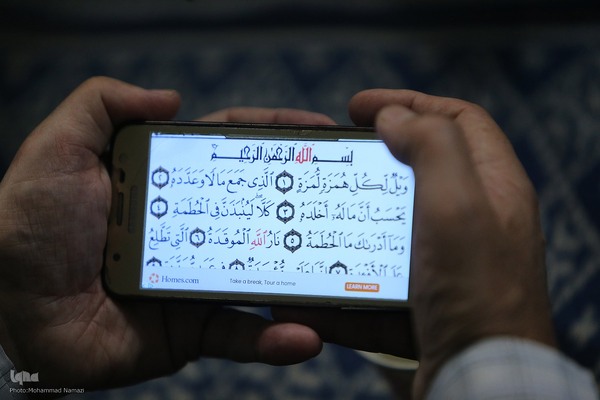 بِسْمِ اللَّهِ الرَّحْمَٰنِ الرَّحِيمِ
وَيْلٌ لِّكُلِّ هُمَزَةٍ لُّمَزَةٍ ١ الَّذِي جَمَعَ مَالًا وَعَدَّدَهُ ٢
يَحْسَبُ أَنَّ مَالَهُ أَخْلَدَهُ ٣ كَلَّا لَيُنبَذَنَّ فِي الْحُطَمَةِ ٤
وَمَا أَدْرَاكَ مَا الْحُطَمَةُ ٥ نَارُ اللَّهِ الْمُوقَدَةُ ٦ الَّتِي تَطَّلِعُ
Homes.com Take a break, Tour a home LEARN MORE
iqna
Photo:Mohammad Namazi